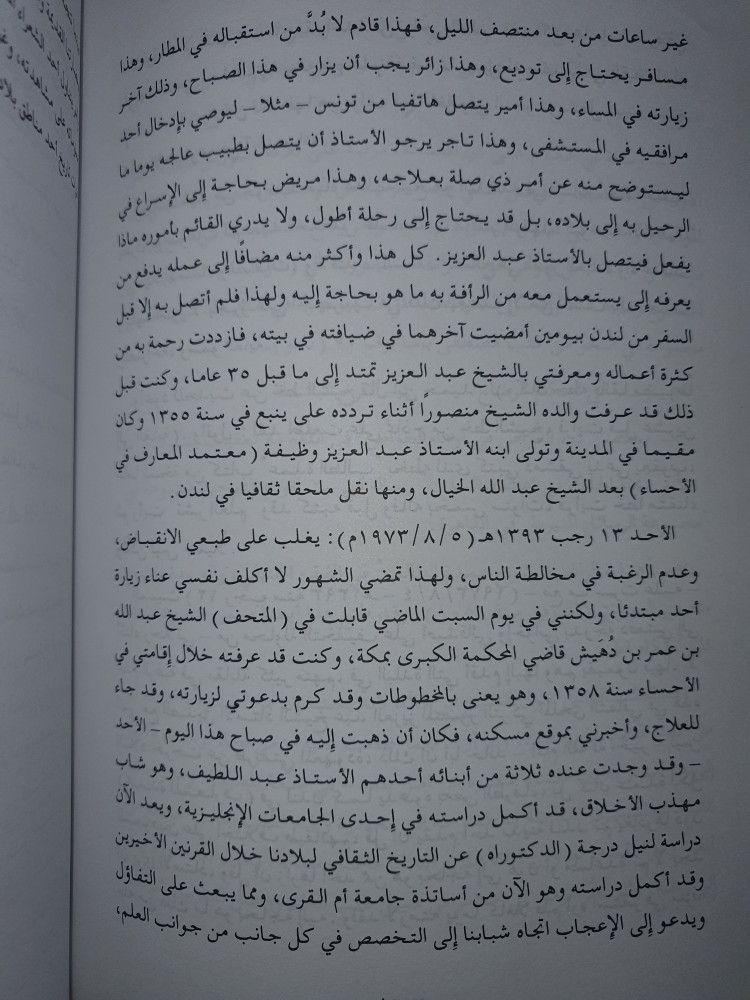 غير ساعات من بعد منتصف الليل، فهذا قادم لا بُدَّ من استقباله في المطار، وهذا
مسافر يحتاج إلى توديع، وهذا زائر يجب أن يزار في هذا الصباح، وذلك آخر
زيارته في المساء، وهذا أمير يتصل هاتفيا من تونس – مثلا – ليوصي بإدخال أحد
مرافقيه في المستشفى، وهذا تاجر يرجو الأستاذ أن يتصل بطبيب عالجه يوما ما
ليستوضح منه عن أمر ذي صلة بعلاجه، وهذا مريض بحاجة إلى الإسراع في
الرحيل به إلى بلاده، بل قد يحتاج إلى رحلة أطول، ولا يدري القائم بأموره ماذا
يفعل فيتصل بالأستاذ عبد العزيز. كل هذا وأكثر منه مضافًا إلى عمله يدفع من
يعرفه إلى يستعمل معه من الرأفة به ما هو بحاجة إليه ولهذا فلم أتصل به إلا قبل
السفر من لندن بيومين أمضيت آخرهما في ضيافته في بيته، فازددت رحمة به من
كثرة أعماله ومعرفتي بالشيخ عبد العزيز تمتد إلى ما قبل ٣٥ عاما، وكنت قبل
ذلك قد عرفت والده الشيخ منصورًا أثناء تردده على ينبع في سنة ١٣٥٥ وكان
مقيما في المدينة وتولى ابنه الأستاذ عبد العزيز وظيفة (معتمد المعارف في
الأحساء) بعد الشيخ عبد الله الخيال، ومنها نقل ملحقا ثقافيا في لندن.
الأحد ١٣ رجب ١٣٩٣هـ (١٩٧٣/٨/٥م): يغلب على طبعي الانقباض،
وعدم الرغبة في مخالطة الناس، ولهذا تمضي الشهور لا أكلف نفسي عناء زيارة
أحد مبتدئا، ولكنني في يوم السبت الماضي قابلت في (المتحف) الشيخ عبد الله
بن عمر بن دُهَيش قاضي المحكمة الكبرى بمكة، وكنت قد عرفته خلال إقامتي في
الأحساء سنة ١٣٥٨، وهو يعنى بالمخطوطات وقد كرم بدعوتي لزيارته، وقد جاء
للعلاج، وأخبرني بموقع مسكنه، فكان أن ذهبت إليه في صباح هذا اليوم – الأحد
– وقد وجدت عنده ثلاثة من أبنائه أحدهم الأستاذ عبد اللطيف، وهو شاب
مهذب الأخلاق، قد أكمل دراسته في إحدى الجامعات الإنجليزية، ويعد الآن
دراسة لنيل درجة (الدكتوراه) عن التاريخ الثقافي لبلادنا خلال القرنين الأخيرين
وقد أكمل دراسته وهو الآن من أساتذة جامعة أم القرى، ومما يبعث على التفاؤل
ويدعو إلى الإعجاب اتجاه شبابنا إلى التخصص في كل جانب من جوانب العلم،